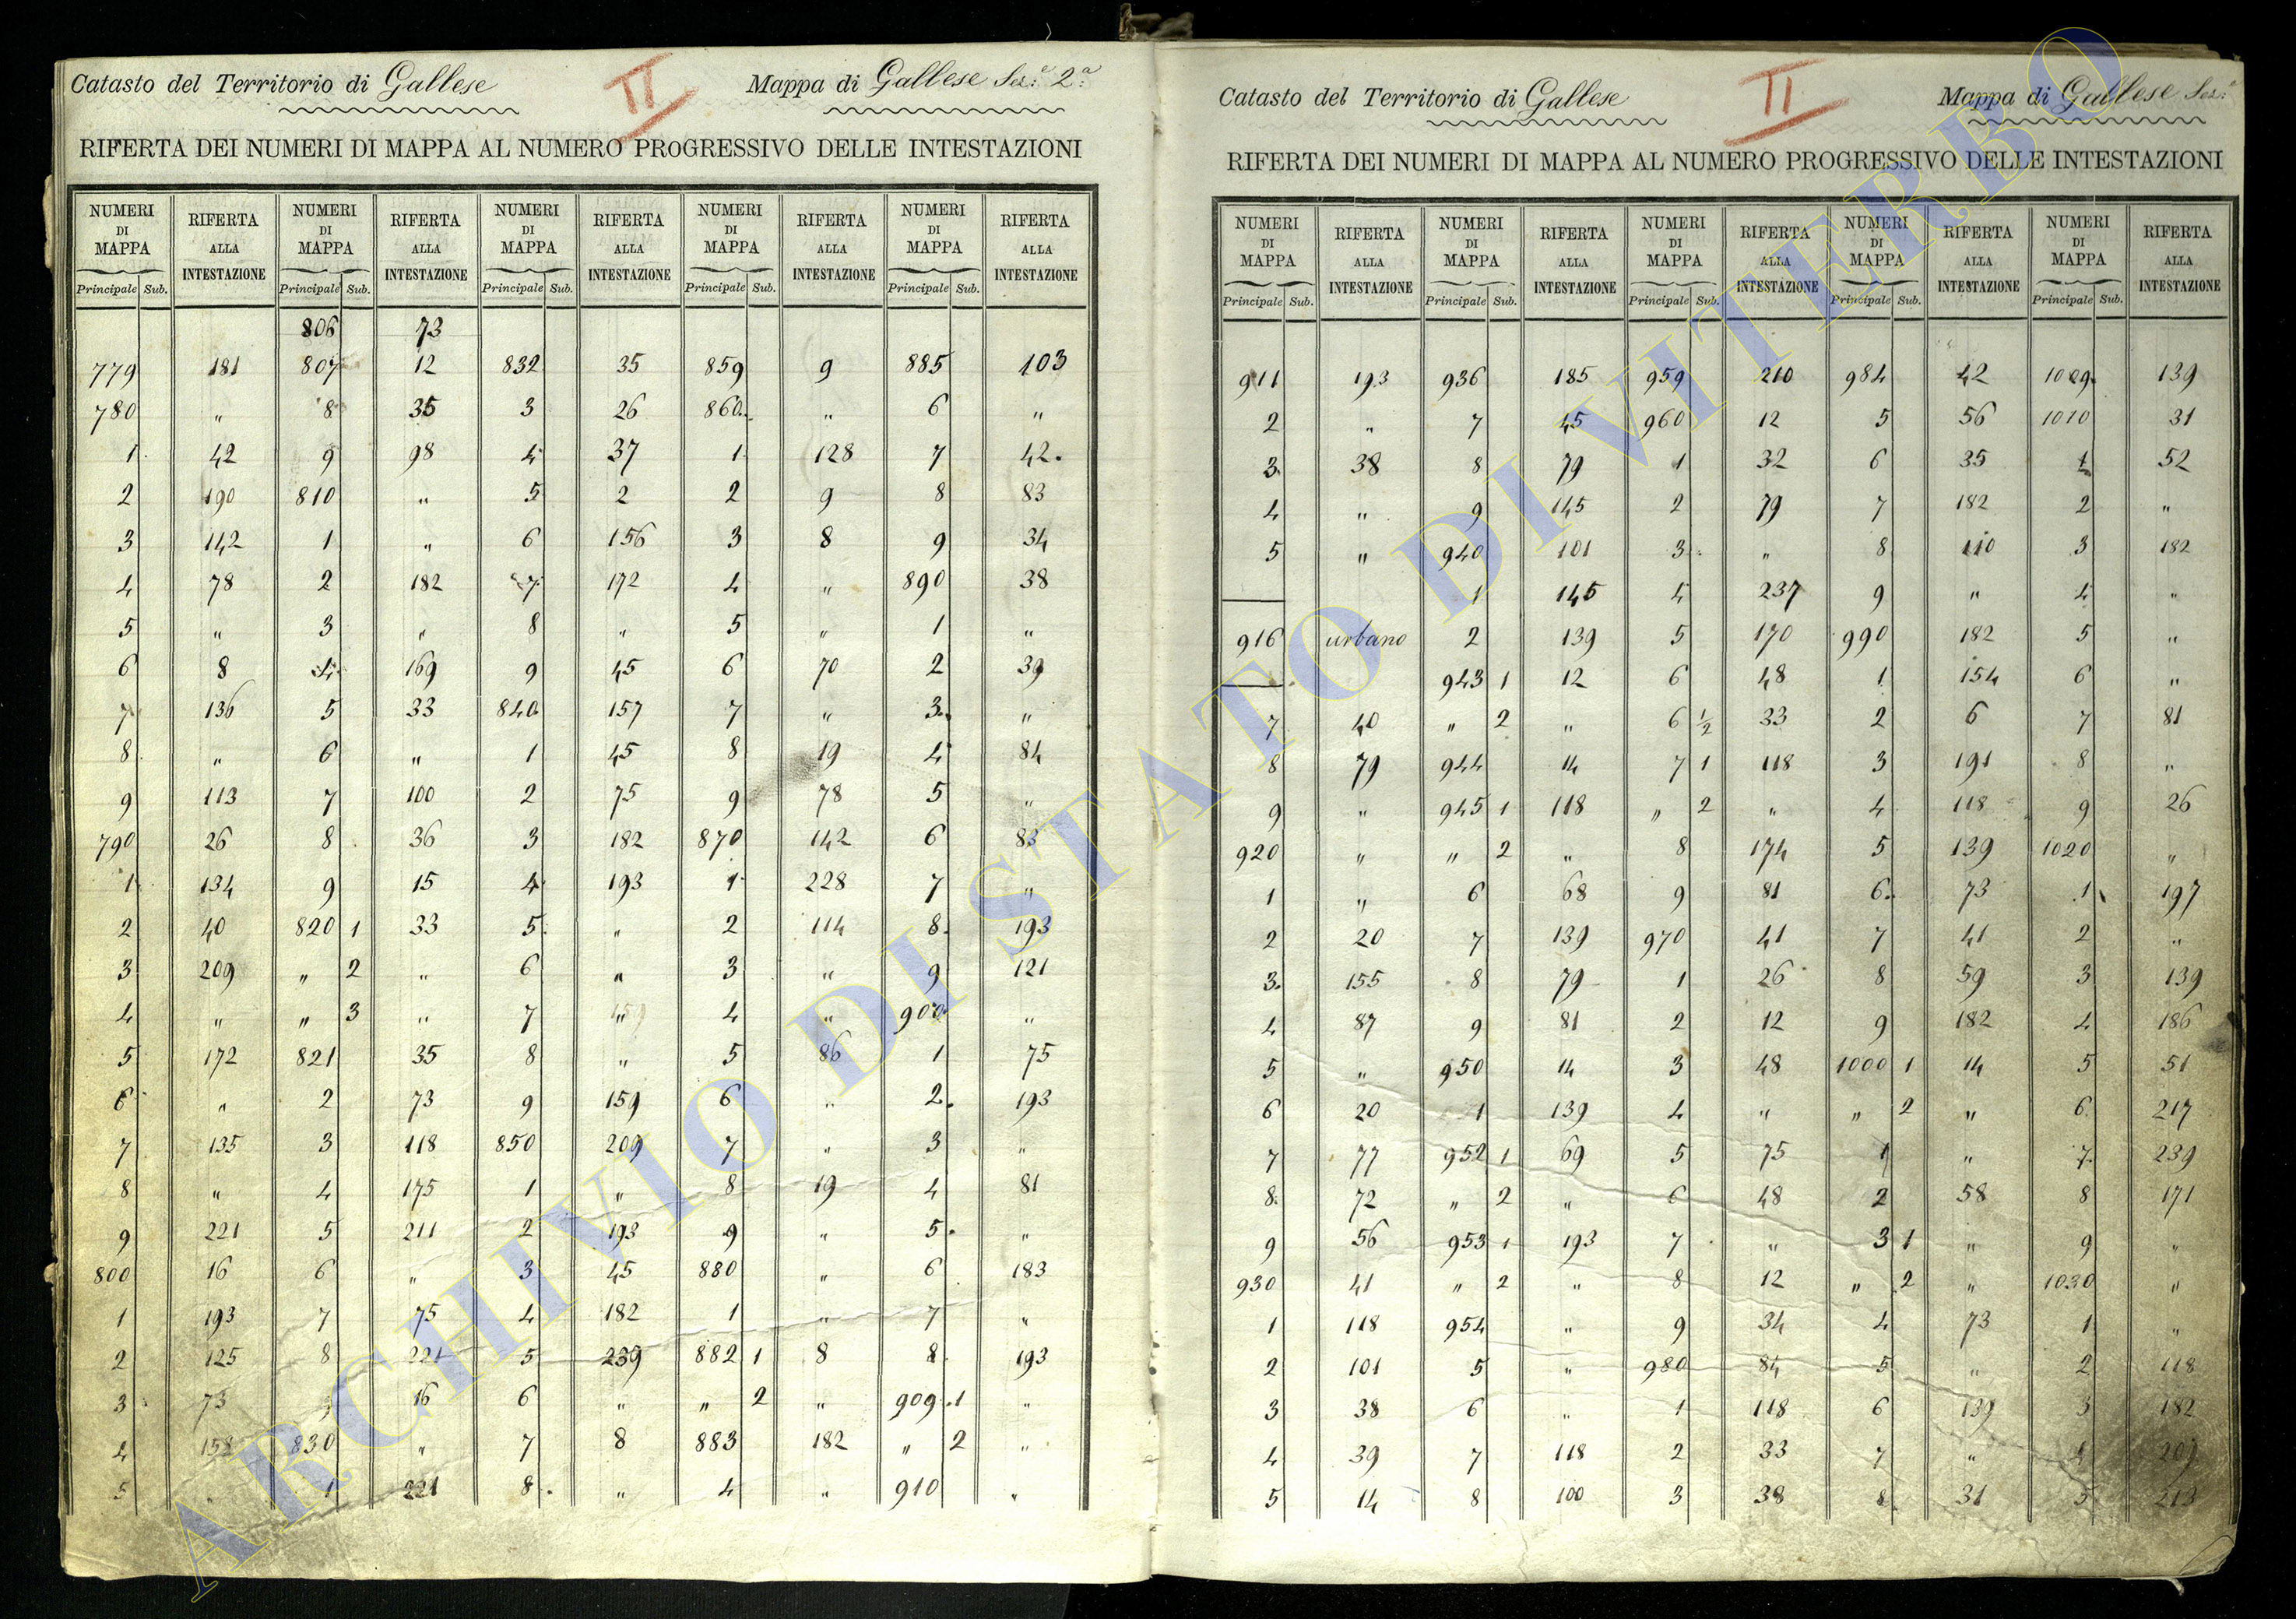 Catasto del Territorio di Gallese II Mappa di Gallese Sez.e 2.a
RIFERTA DEI NUMERI DI MAPPA AL NUMERO PROGRESSIVO DELLE INTESTAZIONI
NUMERI DI MAPPA RIFERTA ALLA INTESTAZIONE NUMERI DI MAPPA RIFERTA ALLA INTESTAZIONE NUMERI DI MAPPA RIFERTA ALLA INTESTAZIONE NUMERI DI MAPPA RIFERTA ALLA INTESTAZIONE NUMERI DI MAPPA RIFERTA ALLA INTESTAZIONE
Principale Sub. Principale Sub. Principale Sub. Principale Sub. Principale Sub.
806 73
779 181 807 12 832 35 859 9 885 103
780 " 8 35 3 26 860 " 6 "
1 42 9 98 4 37 1 128 7 42
2 190 810 " 5 2 2 9 8 83
3 142 1 " 6 156 3 8 9 34
4 78 2 182 7 172 4 " 890 38
5 " 3 " 8 " 5 " 1 "
6 8 4 169 9 45 6 70 2 39
7 136 5 33 840 157 7 " 3 "
8 " 6 " 1 45 8 19 4 84
9 113 7 100 2 75 9 78 5 "
790 26 8 36 3 182 870 142 6 83
1 134 9 15 4 193 1 228 7 "
2 40 820 1 33 5 " 2 114 8 193
3 209 " 2 " 6 " 3 " 9 121
4 " " 3 " 7 " 4 " 900 "
5 172 821 35 8 " 5 86 1 75
6 " 2 73 9 159 6 " 2 193
7 135 3 118 850 209 7 " 3 "
8 " 4 175 1 " 8 19 4 81
9 221 5 211 2 193 9 " 5 "
800 16 6 " 3 45 880 " 6 183
1 193 7 75 4 182 1 " 7 "
2 125 8 221 5 239 882 1 8 8 193
3 73 16 6 " " 2 " 909 1 "
4 158 830 " 7 8 883 182 " 2 "
5 " 1 221 8 " 4 " 910 "
Catasto del Territorio di Gallese II Mappa di Gallese Sez.e
RIFERTA DEI NUMERI DI MAPPA AL NUMERO PROGRESSIVO DELLE INTESTAZIONI
NUMERI DI MAPPA RIFERTA ALLA INTESTAZIONE NUMERI DI MAPPA RIFERTA ALLA INTESTAZIONE NUMERI DI MAPPA RIFERTA ALLA INTESTAZIONE NUMERI DI MAPPA RIFERTA ALLA INTESTAZIONE NUMERI DI MAPPA RIFERTA ALLA INTESTAZIONE
Principale Sub. Principale Sub. Principale Sub. Principale Sub. Principale Sub.
911 193 936 185 959 210 984 42 1009 139
2 " 7 45 960 12 5 56 1010 31
3 38 8 79 1 32 6 35 1 52
4 " 9 145 2 79 7 182 2 "
5 " 940 101 3 " 8 110 3 182
1 145 4 237 9 " 4 "
916 urbano 2 139 5 170 990 182 5 "
943 1 12 6 48 1 154 6 "
7 40 " 2 " 6 1/2 33 2 6 7 81
8 79 944 14 7 1 118 3 191 8 "
9 " 945 1 118 " 2 " 4 118 9 26
920 " " 2 " 8 174 5 139 1020 "
1 " 6 68 9 81 6 73 1 197
2 20 7 139 970 41 7 41 2 "
3 155 8 79 1 26 8 59 3 139
4 87 9 81 2 12 9 182 4 186
5 " 950 14 3 48 1000 1 14 5 51
6 20 1 139 4 " " 2 " 6 217
7 77 952 1 69 5 75 1 " 7 239
8 72 " 2 " 6 48 2 58 8 171
9 56 953 1 193 7 " 3 1 " 9 "
930 41 " 2 " 8 12 " 2 " 1030 "
1 118 954 " 9 34 4 73 1 "
2 101 5 " 980 84 5 " 2 118
3 38 6 " 1 118 6 139 3 182
4 39 7 118 2 33 7 " 4 209
5 14 8 100 3 38 8 31 5 213
ARCHIVIO DI STATO DI VITERBO